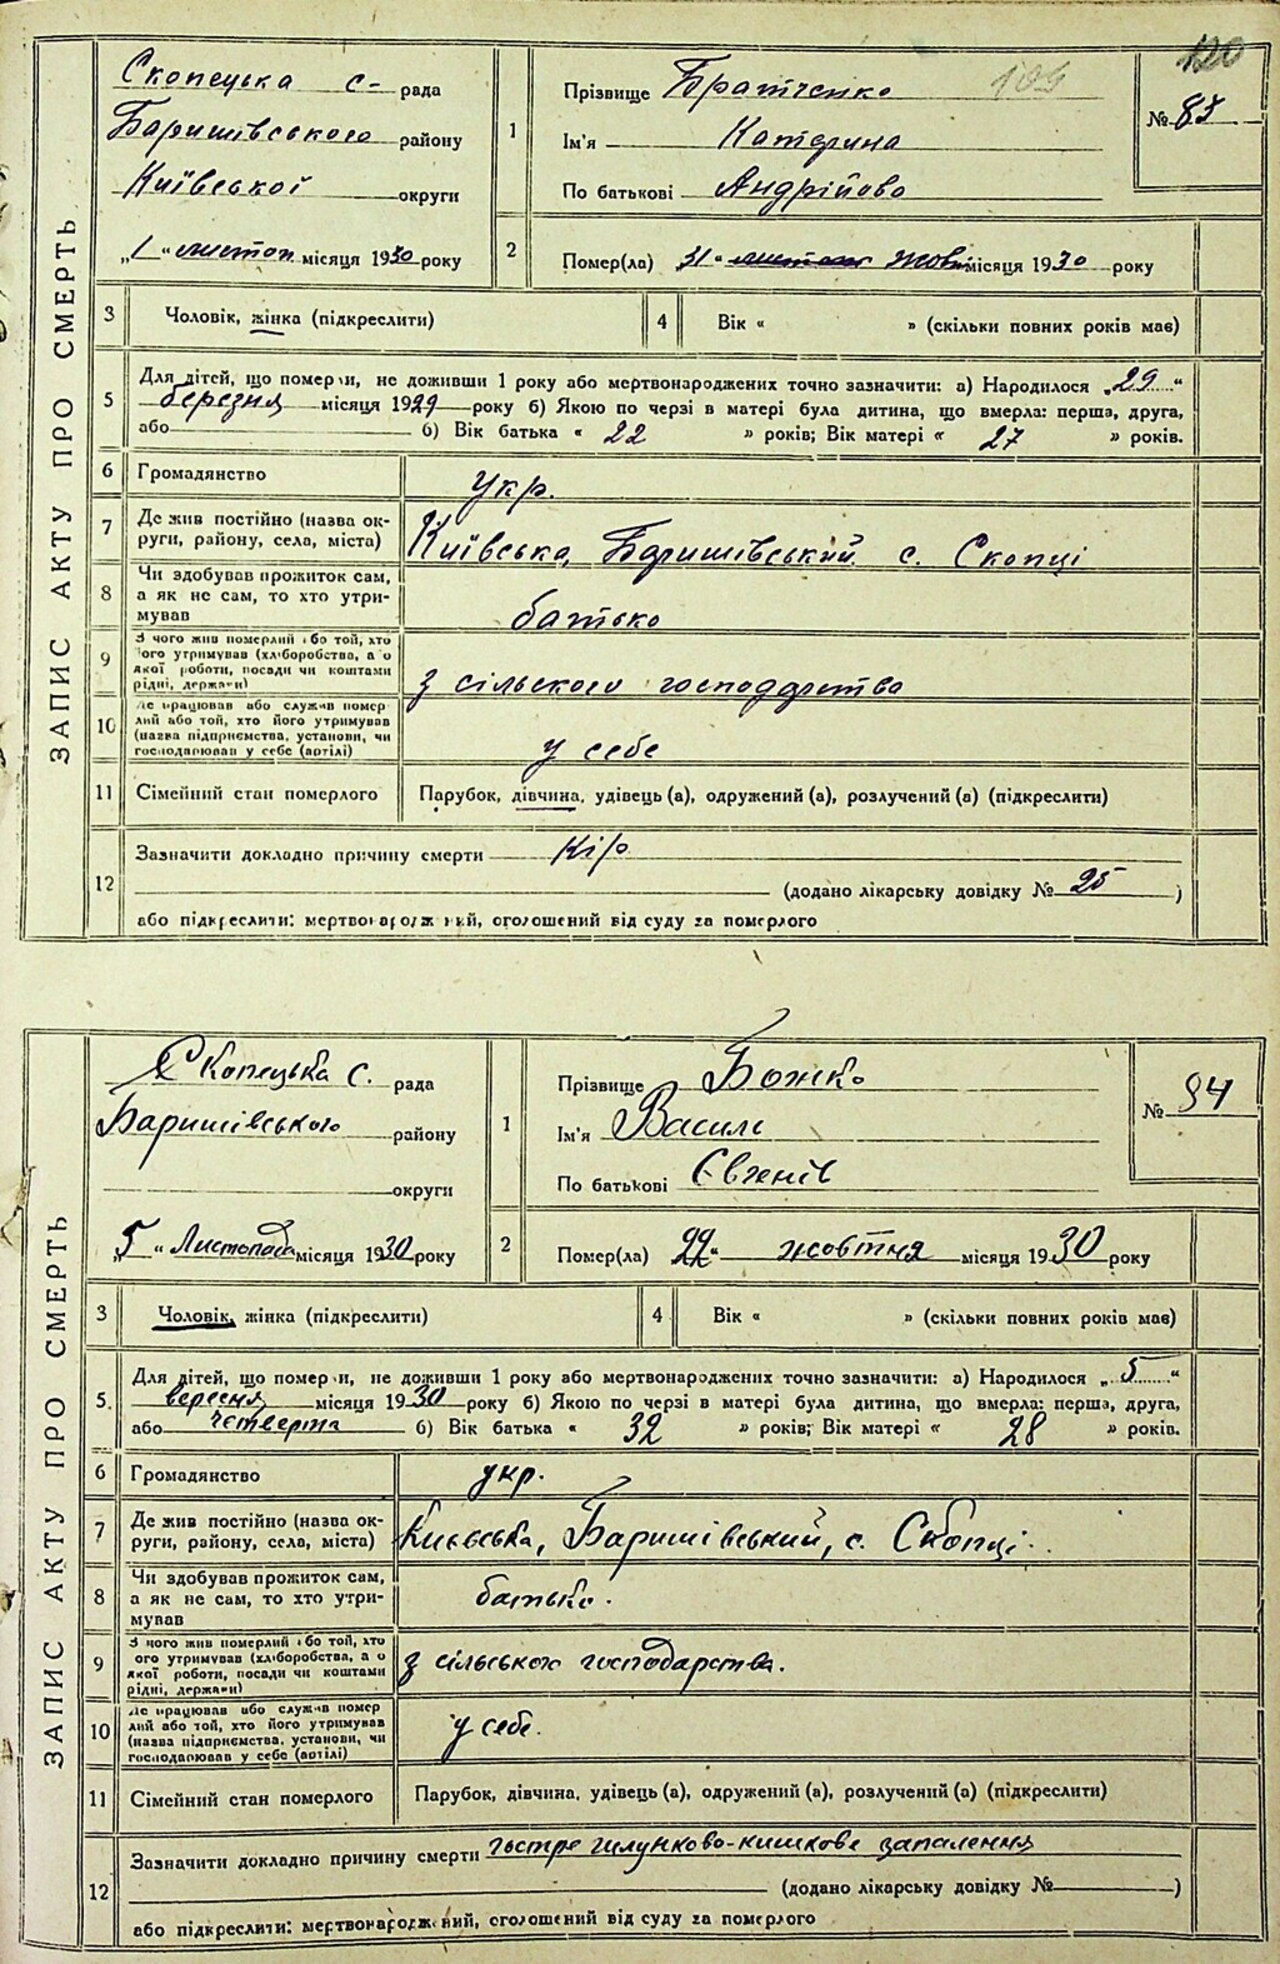 120
109
ЗАПИС АКТУ ПРО СМЕРТЬ
Скопецька с- рада
Баришівського району
Київської округи
„1“ листоп місяця 1930 року
1
Прізвище Братченко
Ім'я Катерина
По батькові Андрійова
№ 83
2
Помер(ла) 31“ листоп жовт місяця 1930 року
3 Чоловік, жінка (підкреслити)
4 Вік « » (скільки повних років має)
5 Для дітей, що померли, не доживши 1 року або мертвонароджених точно зазначити: а) Народилося „29“
березня місяця 1929 року б) Якою по черзі в матері була дитина, що вмерла: перша, друга,
або б) Вік батька « 22 » років; Вік матері « 27 » років.
6 Громадянство укр.
7 Де жив постійно (назва ок-
руги, району, села, міста) Київська, Баришівський с. Скопці
8 Чи здобував прожиток сам,
а як не сам, то хто утри-
мував батько
9 З чого жив померлий або той, хто
ого утримував (хліборобства, а о
якої роботи, посади чи коштами
рідні, держави) з сільского господарства
10 Де працював або служив помер
лий або той, хто його утримував
(назва підприємства, установи, чи
господарював у себе (артілі) у себе
11 Сімейний стан померлого Парубок, дівчина, удівець (а), одружений (а), розлучений (а) (підкреслити)
12 Зазначити докладно причину смерти Кір
(додано лікарську довідку № 25)
або підкреслити: мертвонароджений, оголошений від суду за померлого
ЗАПИС АКТУ ПРО СМЕРТЬ
Скопецька с. рада
Баришівського району
округи
„5“ Листопада місяця 1930 року
1
Прізвище Божко
Ім'я Василь
По батькові Євгенів
№ 84
2
Помер(ла) 22“ жовтня місяця 1930 року
3 Чоловік, жінка (підкреслити)
4 Вік « » (скільки повних років має)
5. Для дітей, що померли, не доживши 1 року або мертвонароджених точно зазначити: а) Народилося „5“
вересня місяця 1930 року б) Якою по черзі в матері була дитина, що вмерла: перша, друга,
або четверта б) Вік батька « 32 » років; Вік матері « 28 » років.
6 Громадянство укр.
7 Де жив постійно (назва ок-
руги, району, села, міста) Києвська, Баришівський, с. Скопці.
8 Чи здобував прожиток сам,
а як не сам, то хто утри-
мував батько.
9 З чого жив померлий або той, хто
ого утримував (хліборобства, а о
якої роботи, посади чи коштами
рідні, держави) з сільського господарства.
10 Де працював або служив помер
лий або той, хто його утримував
(назва підприємства, установи, чи
господарював у себе (артілі) у себе.
11 Сімейний стан померлого Парубок, дівчина, удівець (а), одружений (а), розлучений (а) (підкреслити)
12 Зазначити докладно причину смерти гостре шлунково-кишкове запалення
(додано лікарську довідку № )
або підкреслити: мертвонароджений, оголошений від суду за померлого